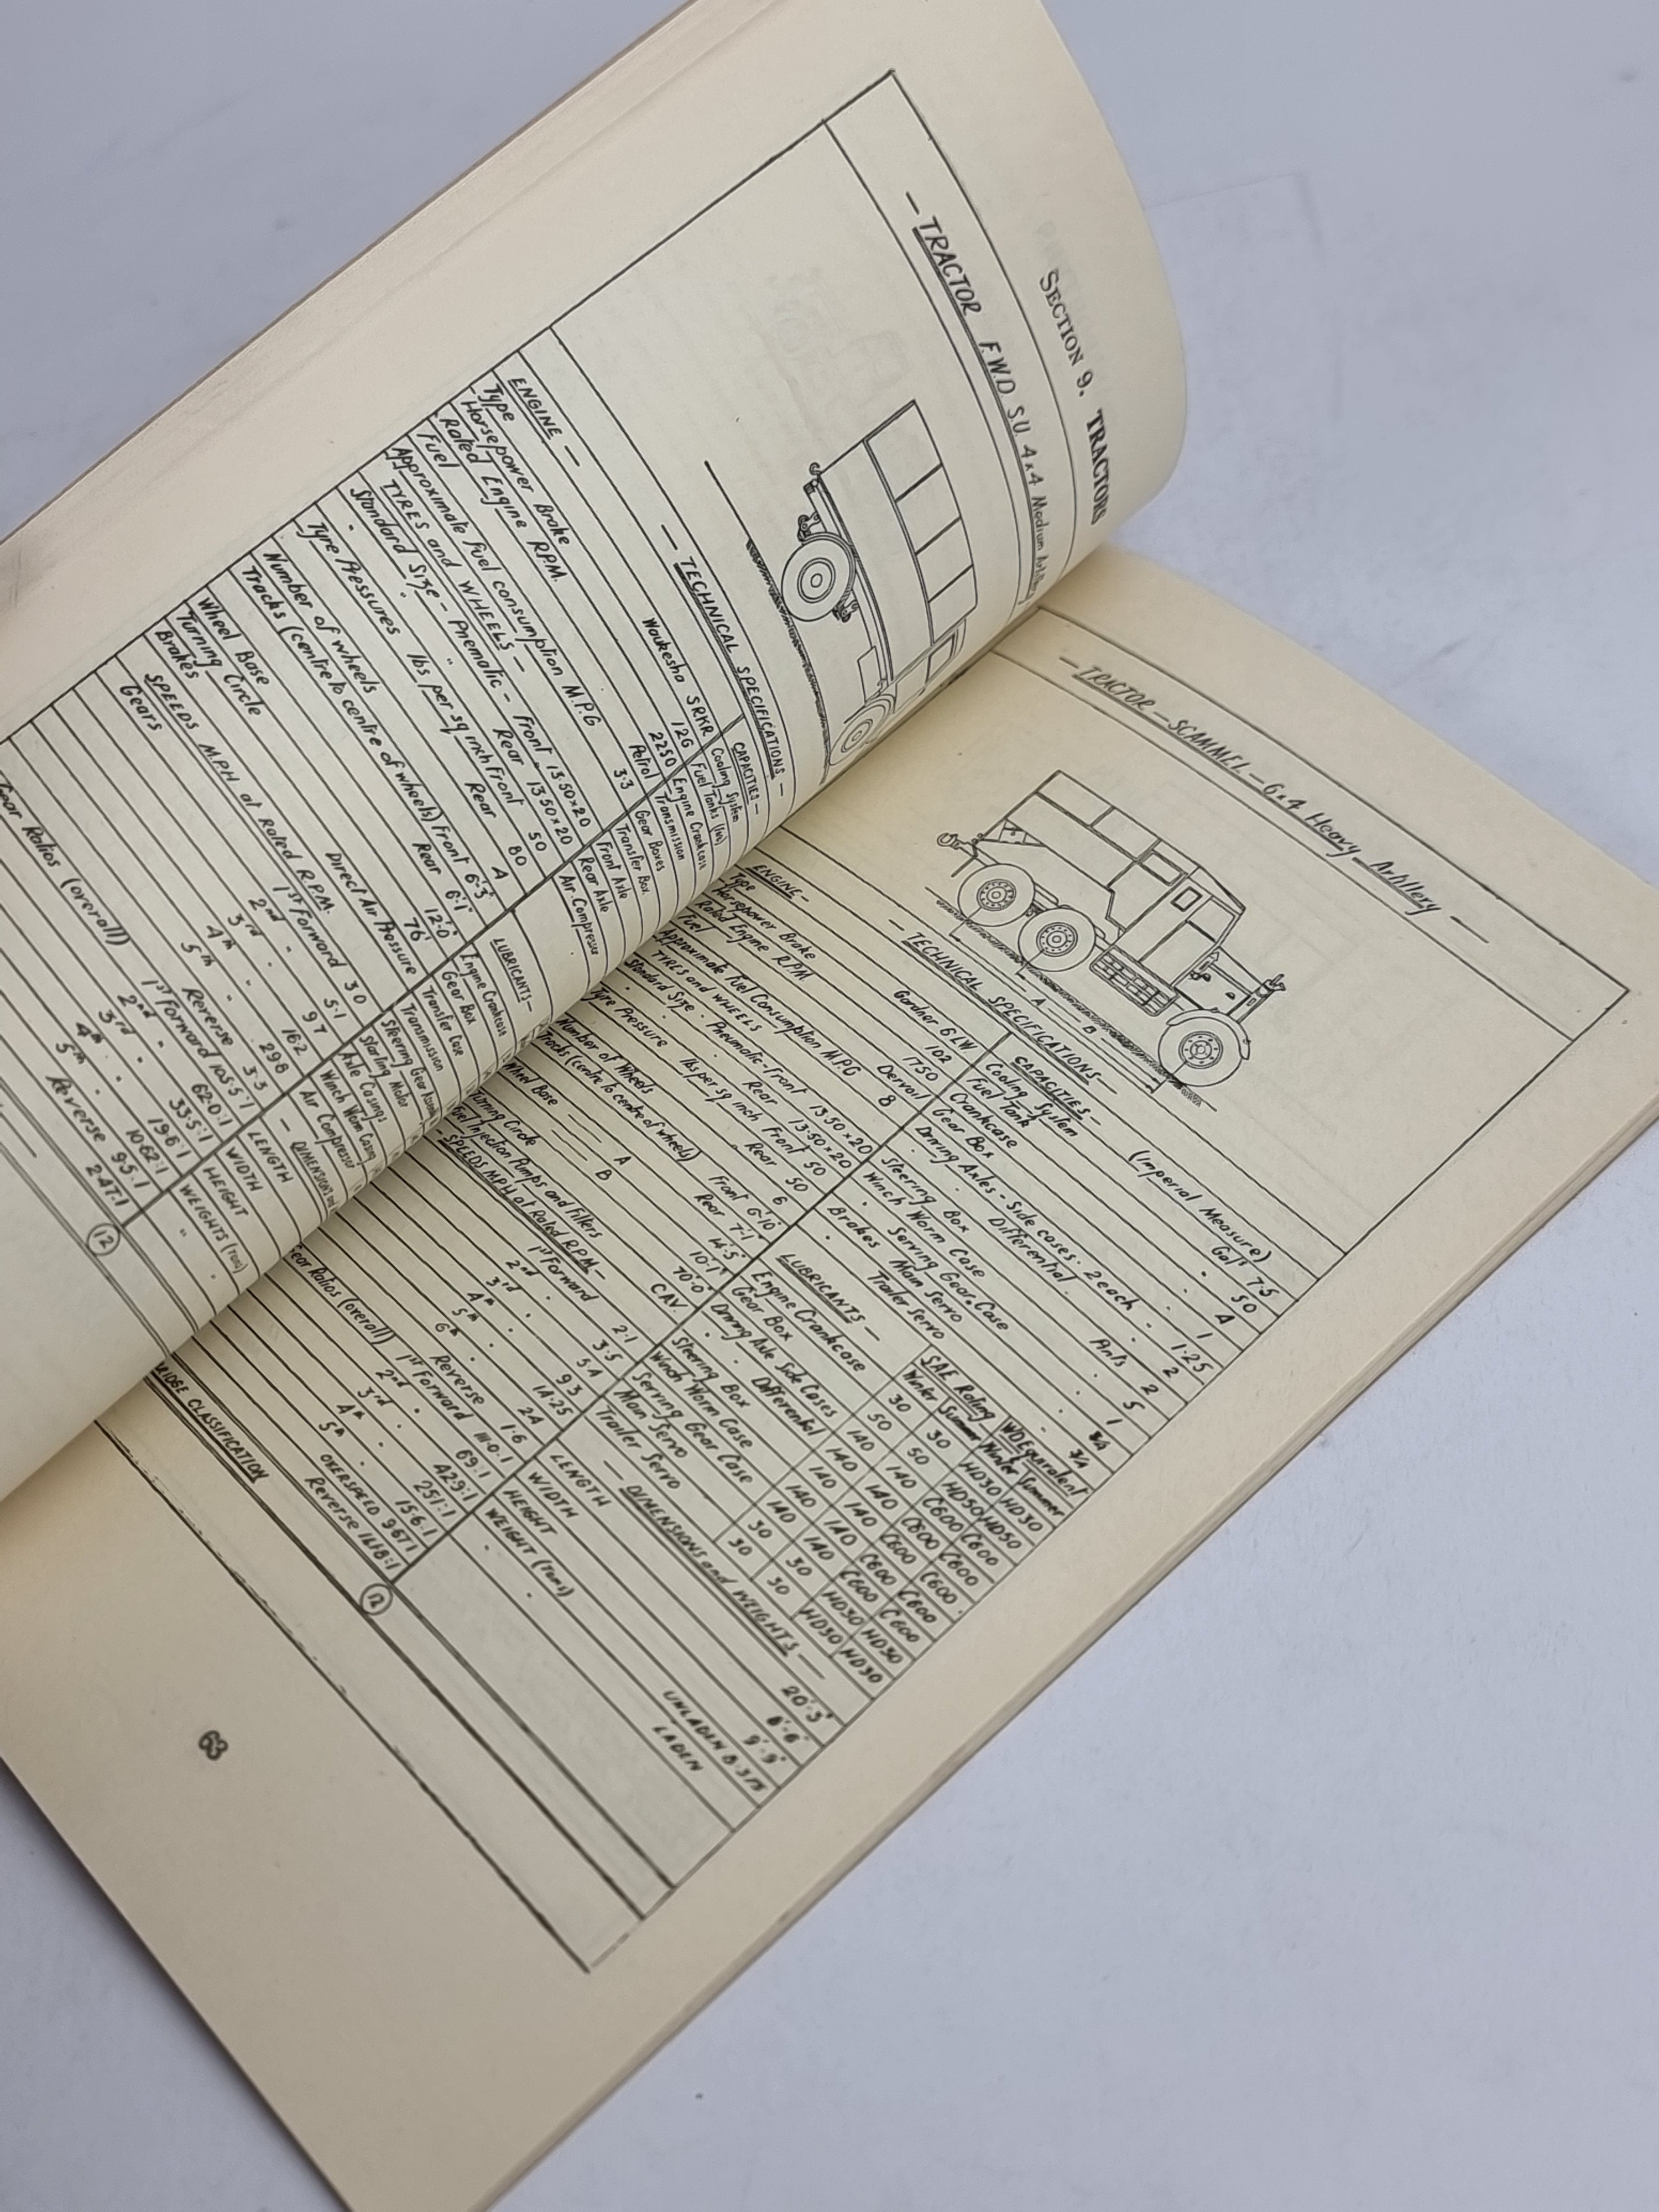 SECTION 9. TRACTORS
— TRACTOR F.W.D. S.U. 4x4 Medium Artillery
— TECHNICAL SPECIFICATIONS —
ENGINE —
Type Waukesha SRKR
Horsepower Brake 126
Rated Engine R.P.M. 2250
Fuel Petrol
Approximate Fuel consumption M.P.G 3.3
TYRES and WHEELS —
Standard Size - Pnematic - Front 13.50 x 20
" " Rear 13.50 x 20
Tyre Pressures lbs per sq inch Front 50
Rear 80
Number of wheels 4
Tracks (centre to centre of wheels) Front 6'.3"
Rear 6'.1"
Wheel Base 12'.0"
Turning Circle 76'
Brakes Direct Air Pressure
SPEEDS M.P.H at Rated R.P.M.
Gears 1st Forward 3.0
2nd . 5.1
3rd . 9.7
4th . 16.2
5th . 29.8
Reverse 3.3
Gear Ratios (overall) 1st Forward 105.5:1
2nd . 62.0:1
3rd . 33.5:1
4th . 19.6:1
5th . 10.62:1
Reverse 9.5:1
247:1
12
CAPACITIES —
Cooling System
Fuel Tanks (two)
Engine Crankcase
Transmission
Gear Boxes
Transfer Box
Front Axle
Rear Axle
Air Compressor
LUBRICANTS —
Engine Crankcase
Gear Box
Transfer Case
Transmission
Steering Gear
Starting Motor
Axle Casings
Winch Worm Casing
Air Compressor
— DIMENSIONS and
LENGTH
WIDTH
HEIGHT
WEIGHTS (Tons)
— TRACTOR — SCAMMEL — 6x4 Heavy Artillery —
A
B
— TECHNICAL SPECIFICATIONS —
ENGINE —
Type Gardner 6LW
Horsepower Brake 102
Rated Engine RPM 1750
Fuel Dervoil
Approximate Fuel Consumption M.P.G 8
TYRES and WHEELS
Standard Size . Pneumatic - Front 13.50 x 20
Rear 13.50 x 20
Tyre Pressure lbs per sq inch Front 50
Rear 50
Number of Wheels 6
Tracks (centre to centre of wheels) Front 6'.10"
Rear 7'.1"
Wheel Base A 14'.5"
B 10'.1"
Turning Circle 70'.0"
Fuel Injection Pumps and Filters CAV.
SPEEDS M.P.H at Rated R.P.M. —
1st Forward 2.1
2nd . 3.5
3rd . 5.4
4th . 9.3
5th . 14.25
6th . 24
Reverse 1.6
Gear Ratios (overall) 1st Forward 111.0:1
2nd . 69:1
3rd . 42.9:1
4th . 25.1:1
5th . 15.6:1
OVERSPEED 9.67:1
Reverse 161.18:1
12
BRIDGE CLASSIFICATION
CAPACITIES — (Imperial Measure)
Cooling System Gal' 7.5
Fuel Tank . 50
Crankcase . 4
Gear Box . 1.25
Driving Axles - Side cases . 2 each . 1
. Differential Pints 2
Steering Box . 2
Winch Worm Case . 5
. Serving Gear. Case . 1
Brakes Main Servo . 3/4
. Trailer Servo . 3/4
LUBRICANTS — SAE Rating WD Equivalent
Winter Summer Winter Summer
Engine Crankcase 30 30 HD30 HD30
Gear Box 50 50 HD50 HD50
Driving Axle Side Cases 140 140 C600 C600
. Differential 140 140 C600 C600
Steering Box 140 140 C600 C600
Winch Worm Case 140 140 C600 C600
. Serving Gear Case 140 140 C600 C600
Main Servo 30 30 HD30 HD30
Trailer Servo 30 30 HD30 HD30
— DIMENSIONS and WEIGHTS —
LENGTH 20'.3"
WIDTH 8'.6"
HEIGHT 9'.9"
WEIGHT (Tons) UNLADEN 8.375
. LADEN
63